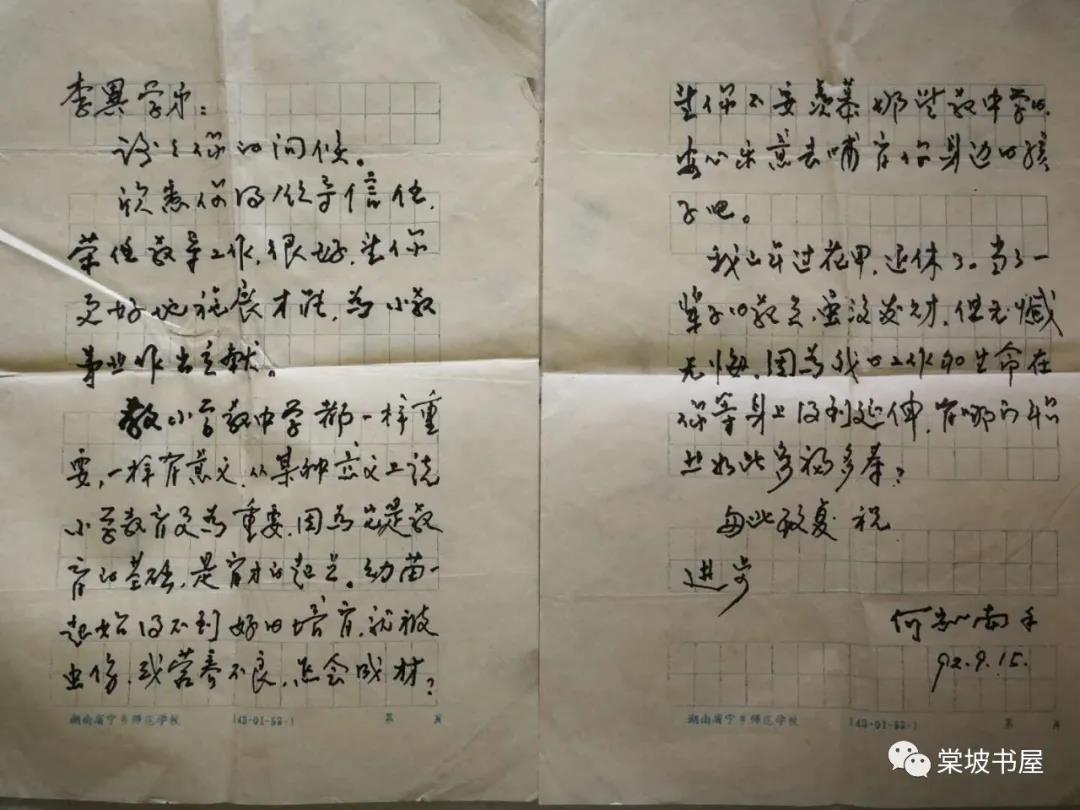 李异学弟：
谢谢你的问候。
欣悉你得领导信任，
荣任教导工作，很好，望你
更好地施展才能，为小教
事业作出贡献。
教小学教中学都一样重
要，一样有意义，从某种意义上说
小学教育更为重要，因为它是教
育的基础，是育才的起点。幼苗一
起始得不到好的培育，就被
虫伤，或营养不良，怎会成材？
湖南省宁乡师范学校 (43-01-53-) 第 页
望你不要羡慕那些教中学的，
安心乐意去哺育你身边的孩
子吧。
我已年过花甲，退休了。当了一
辈子的教员，虽没发财，但无憾
无悔，因为我的工作和生命在
你等身上得到延伸，有哪门职
业如此多福多寿？
匆此敬复 祝
进步
何 南手
92.9.15.
湖南省宁乡师范学校 (43-01-53-) 第 页
棠坡书屋